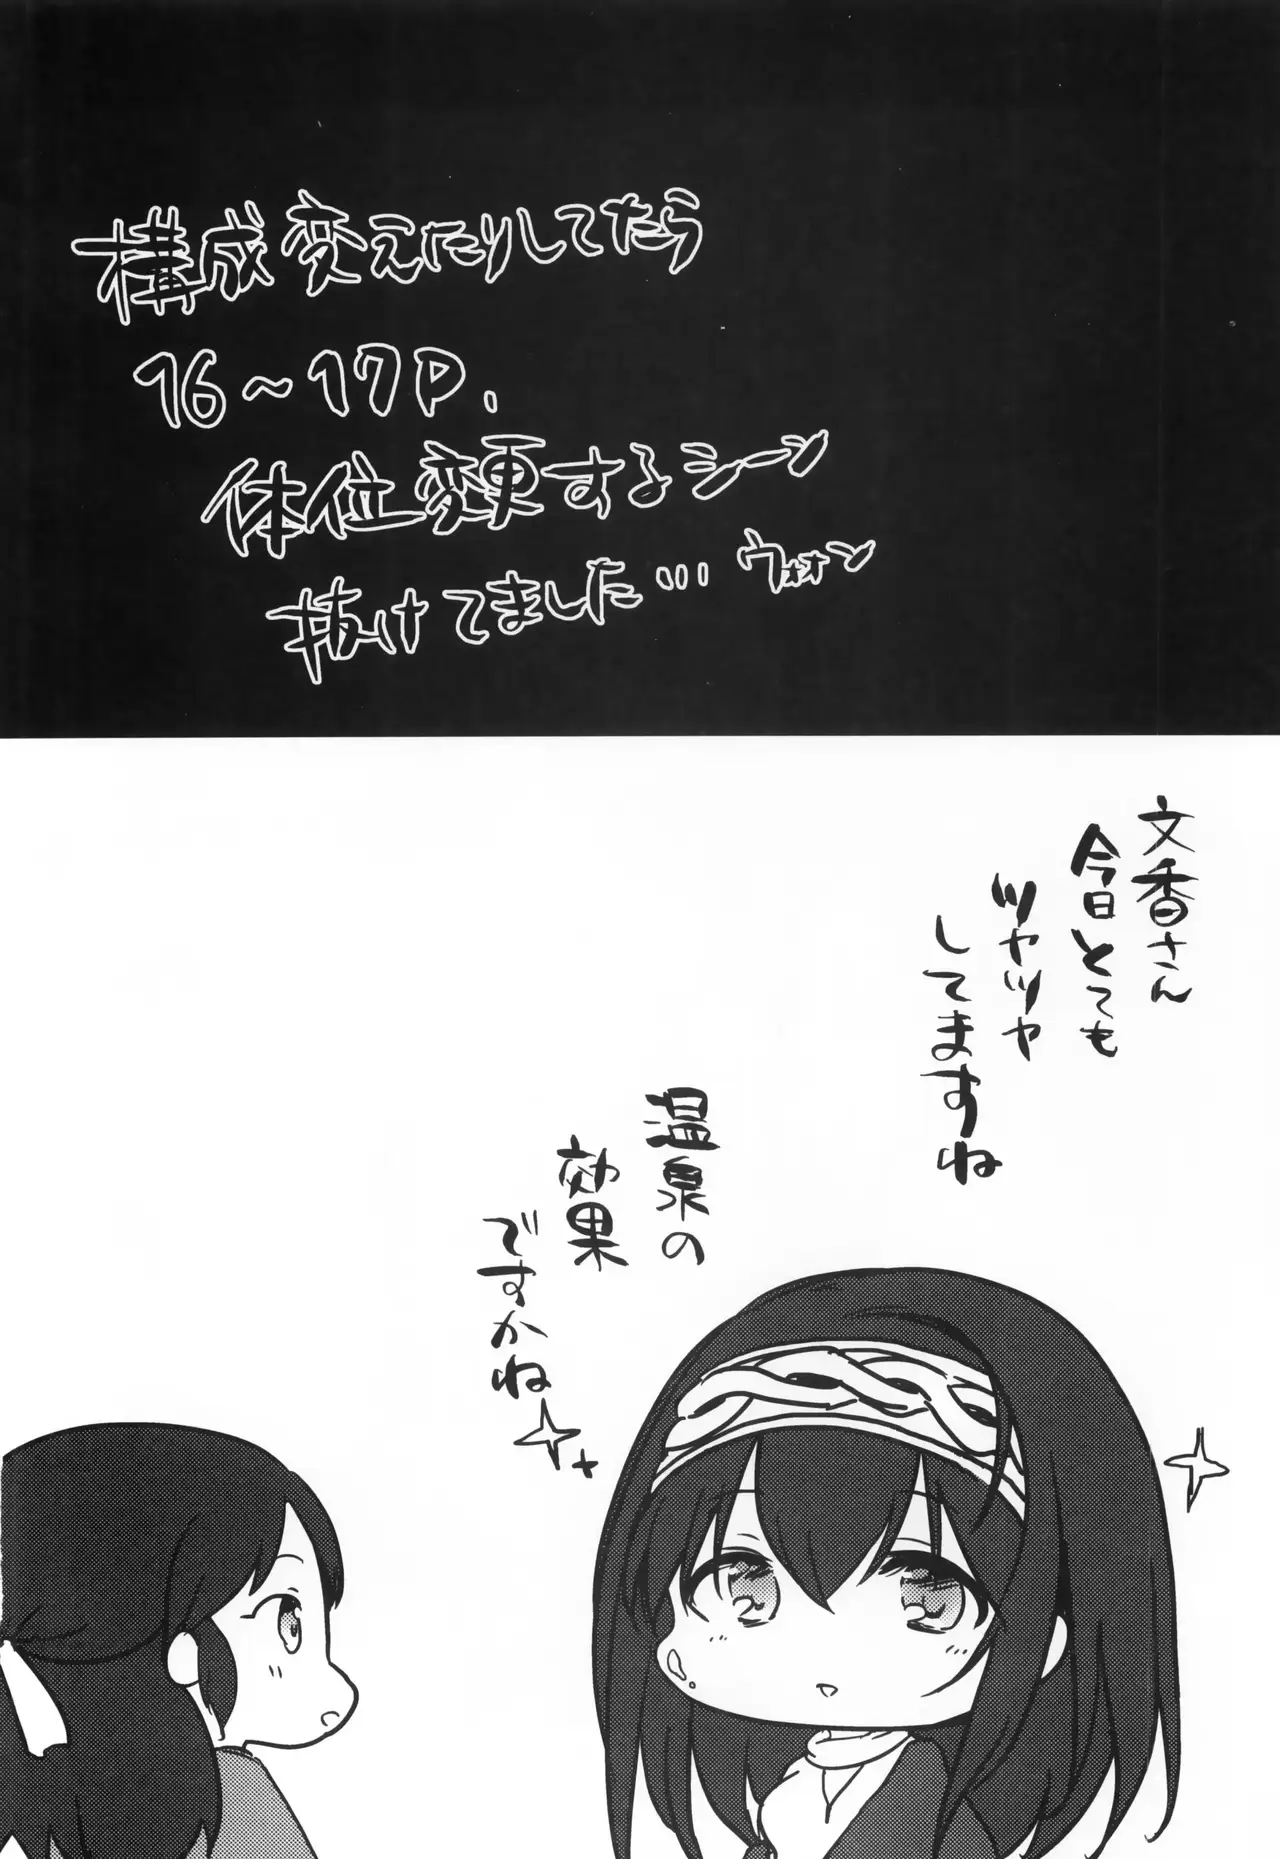 構成変えたりしてたら
16~17P.
体位変更するシーン
抜けてました…ウォォン
文香さん
今日とても
ツヤツヤ
してますね
温泉の
効果
ですかね